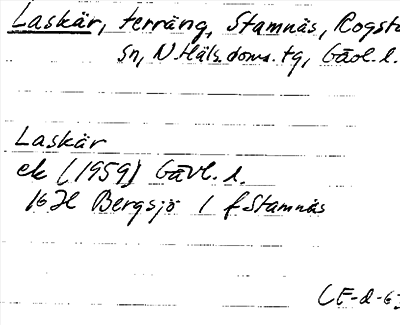 Laskär, terräng, Stamnäs, Rogsta
sn, N. Häls. doms. tg, Gävl. l.
Laskär
ek (1959) Gävl. l.
16H Bergsjö 1 f Stamnäs